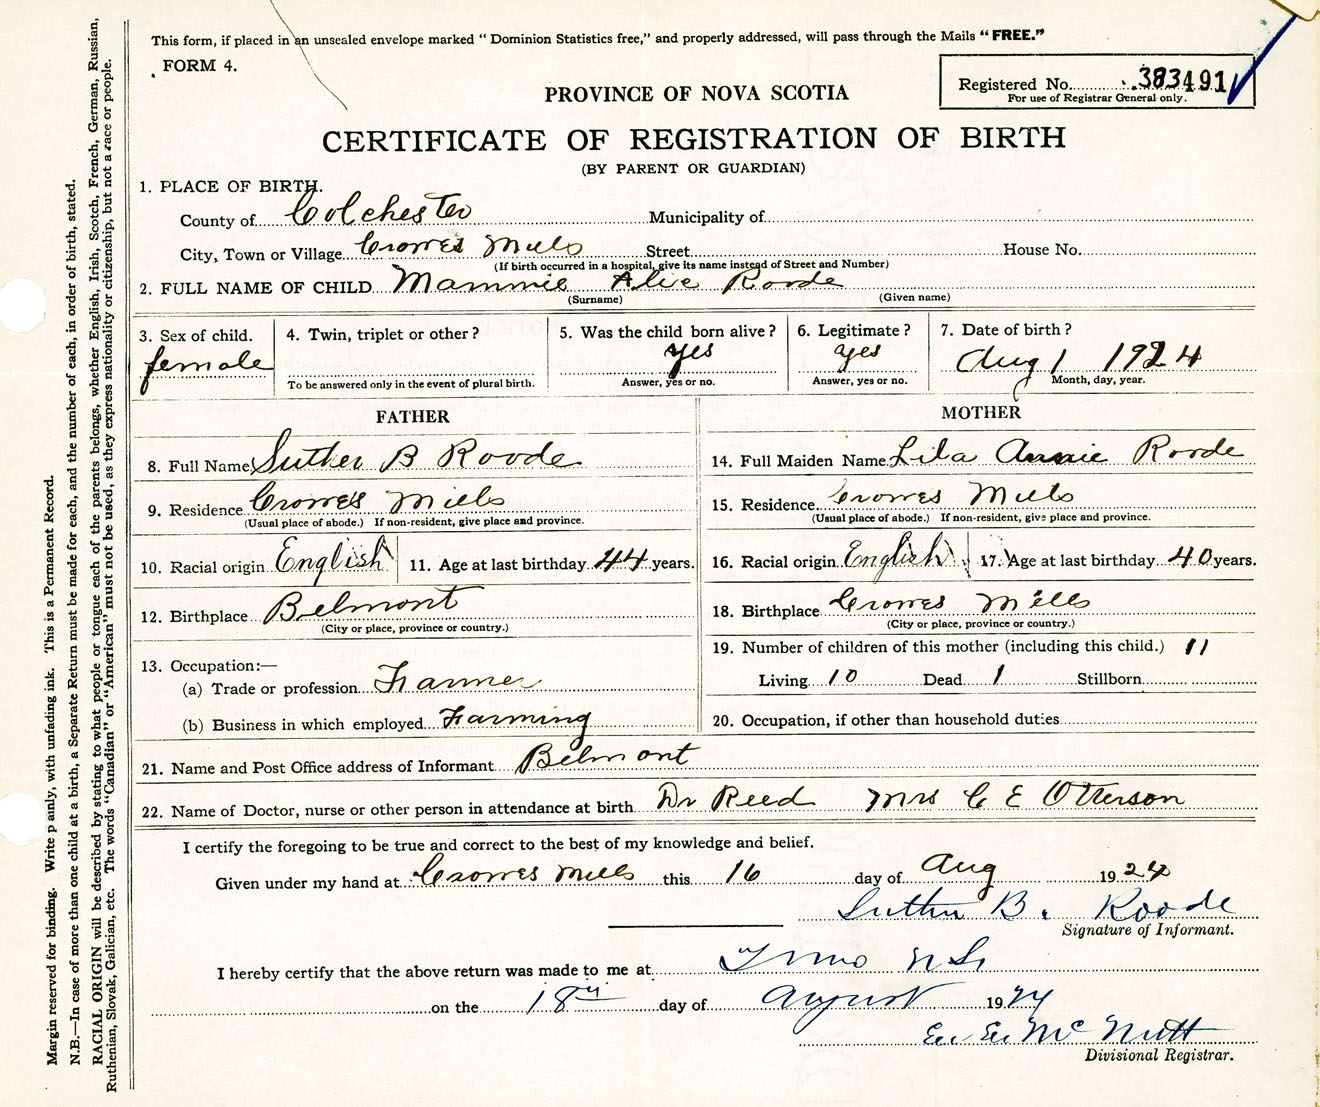 This form, if placed in an unsealed envelope marked “ Dominion Statistics free,” and properly addressed, will pass through the Mails “ FREE.”
FORM 4.
Registered No. 383491
For use of Registrar General only.
PROVINCE OF NOVA SCOTIA
CERTIFICATE OF REGISTRATION OF BIRTH
(BY PARENT OR GUARDIAN)
1. PLACE OF BIRTH.
County of Colchester Municipality of
City, Town or Village Crowes Mills Street House No.
(If birth occurred in a hospital, give its name instead of Street and Number)
2. FULL NAME OF CHILD Mammie Alice Roode
(Surname) (Given name)
3. Sex of child. 4. Twin, triplet or other ? 5. Was the child born alive ? 6. Legitimate ? 7. Date of birth ?
female yes yes Aug 1 1924
To be answered only in the event of plural birth. Answer, yes or no. Answer, yes or no. Month, day, year.
FATHER MOTHER
8. Full Name Luther B Roode 14. Full Maiden Name Lila Annie Roode
9. Residence Crowes Mills 15. Residence Crowes Mills
(Usual place of abode.) If non-resident, give place and province. (Usual place of abode.) If non-resident, give place and province.
10. Racial origin English 11. Age at last birthday 44 years. 16. Racial origin English 17. Age at last birthday 40 years.
12. Birthplace Belmont 18. Birthplace Crowes Mills
(City or place, province or country.) (City or place, province or country.)
13. Occupation:— 19. Number of children of this mother (including this child.) 11
(a) Trade or profession Farmer Living 10 Dead 1 Stillborn
(b) Business in which employed Farming 20. Occupation, if other than household duties
21. Name and Post Office address of Informant Belmont
22. Name of Doctor, nurse or other person in attendance at birth Dr Reed Mrs C E Otterson
I certify the foregoing to be true and correct to the best of my knowledge and belief.
Given under my hand at Crowes Mills this 16 day of Aug 1924
Luther B. Roode
Signature of Informant.
I hereby certify that the above return was made to me at Truro N.S.
on the 18th day of August 1924
E. E. McNutt
Divisional Registrar.
Margin reserved for binding. Write p ainly, with unfading ink. This is a Permanent Record.
N.B.—In case of more than one child at a birth, a Separate Return must be made for each, and the number of each, in order of birth, stated.
RACIAL ORIGIN will be described by stating to what people or tongue each of the parents belongs, whether English, Irish, Scotch, French, German, Russian,
Ruthenian, Slovak, Galician, etc. The words “Canadian” or “American” must not be used, as they express nationality or citizenship, but not a race or people.